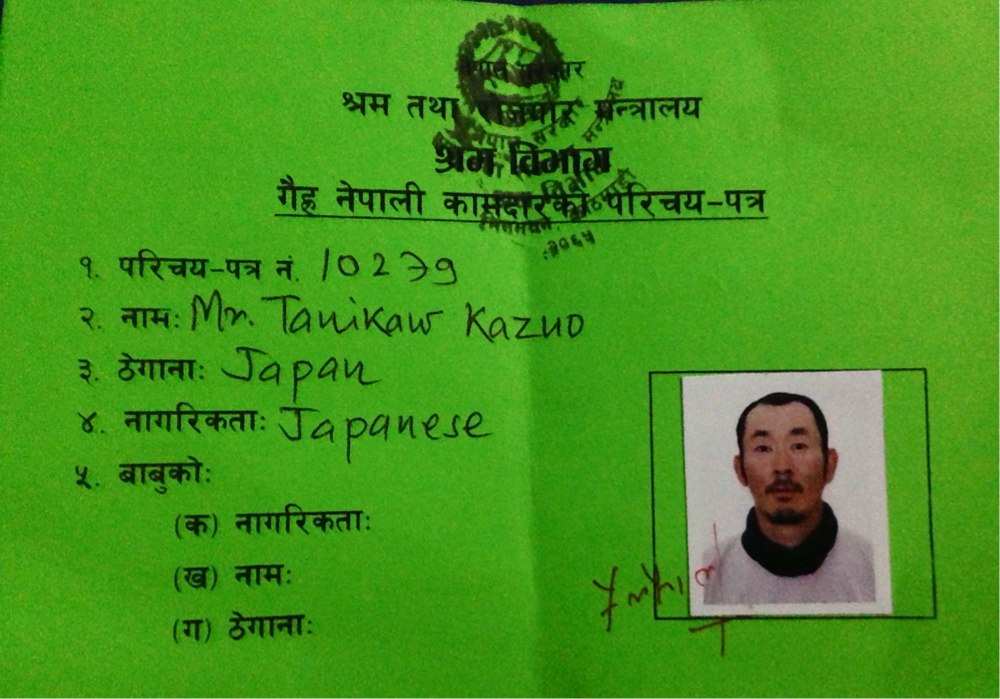 नेपाल सरकार
श्रम तथा रोजगार मन्त्रालय
श्रम विभाग
गैह्र नेपाली कामदारको परिचय-पत्र
२०६५
१. परिचय-पत्र नं. 10279
२. नाम: Mr. Tanikaw Kazuo
३. ठेगाना: Japan
४. नागरिकता: Japanese
५. बाबुको:
(क) नागरिकता:
(ख) नाम:
(ग) ठेगाना: